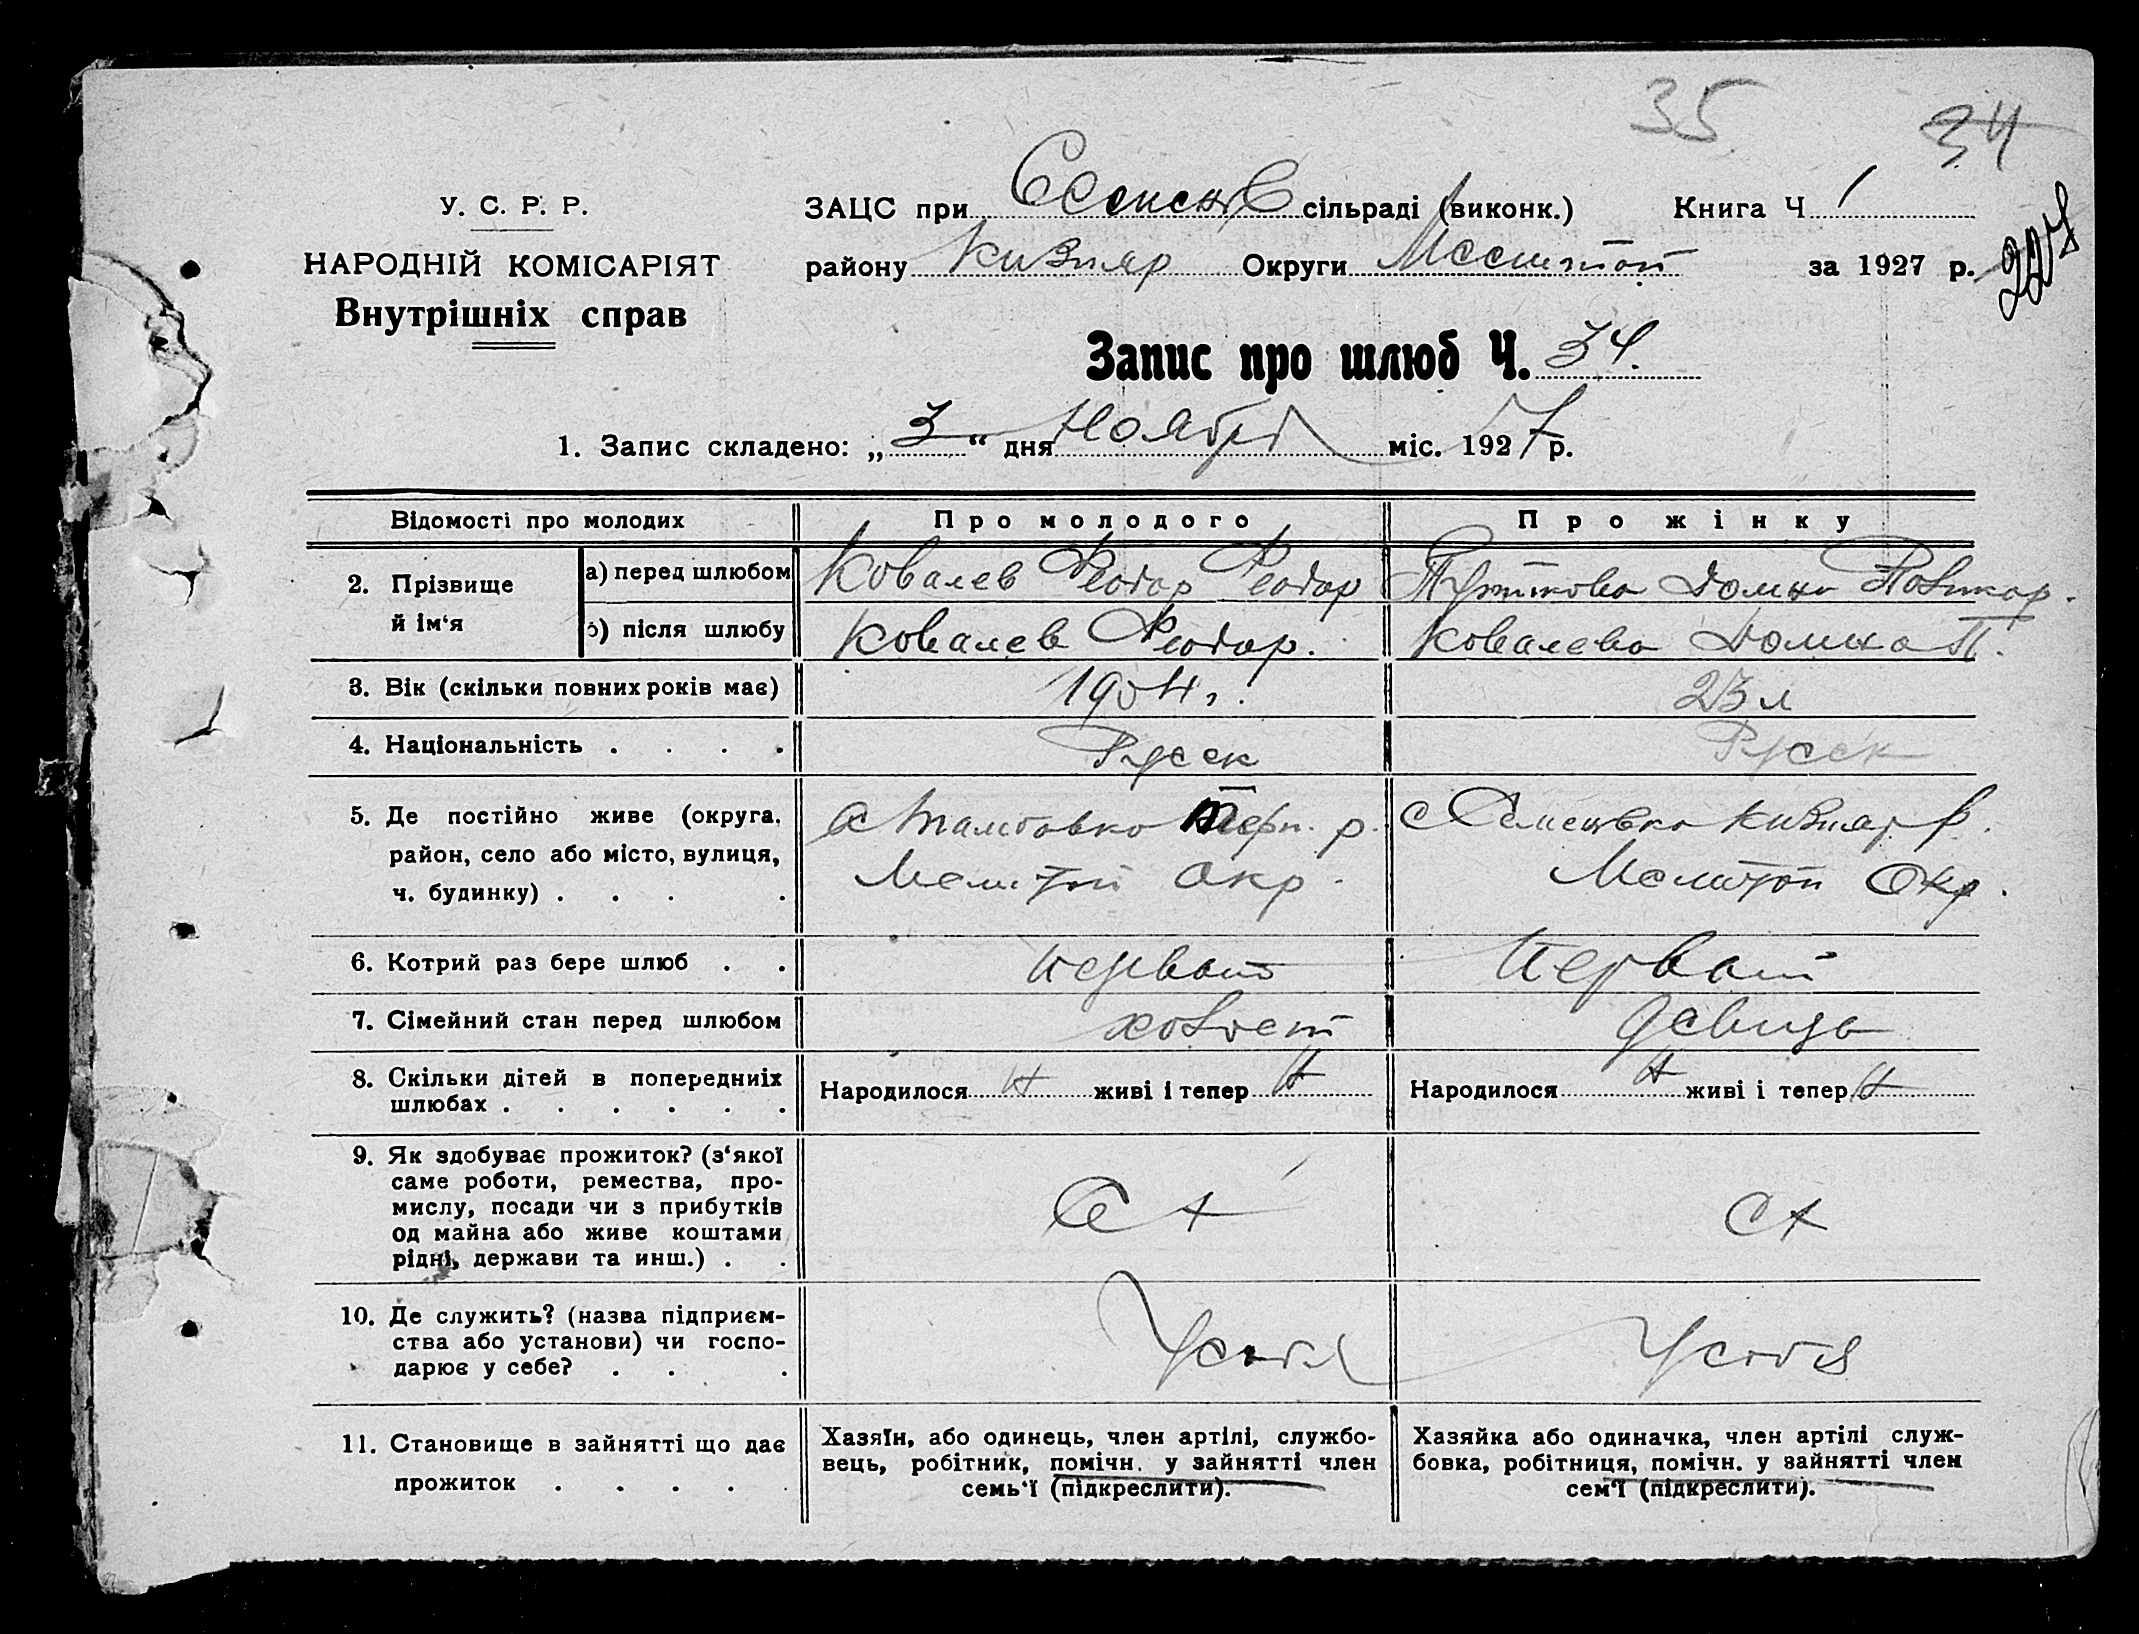 35
34
У. С. Р. Р.
НАРОДНІЙ КОМІСАРІЯТ
Внутрішніх справ
ЗАЦС при сільраді (виконк.) Книга Ч 1
району Кизияр Округи за 1927 р.
Запис про шлюб Ч. 34.
1. Запис складено: „3“ дня Ноября міс. 1927 р.
Відомості про молодих Про молодого Про жінку
2. Прізвище й ім‘я
а) перед шлюбом Ковалев Феодор Феодор Домна Поликар.
б) після шлюбу Ковалев Феодор. Ковалева Домна П.
3. Вік (скільки повних років має) 1904 г. 23 л
4. Національність . . . . Русск Русск
5. Де постійно живе (округа, район, село або місто, вулиця, ч. будинку) . . . .
с Тамбовка р.
Мелитоп Окр.
с Кизияр р.
Мелитоп Окр.
6. Котрий раз бере шлюб . . первый Первый
7. Сімейний стан перед шлюбом холост девица
8. Скільки дітей в попередниіх
шлюбах . . . . . .
Народилося Н живі і тепер Н Народилося Н живі і тепер Н
9. Як здобуває прожиток? (з‘якої
саме роботи, ремества, про-
мислу, посади чи з прибутків
од майна або живе коштами
рідні, держави та инш.) . .
С Х С Х
10. Де служить? (назва підприєм-
ства або установи) чи госпо-
дарює у себе? . . .
У себя У себя
11. Становище в зайнятті що дає
прожиток . . . . .
Хазяїн, або одинець, член артілі, службо-
вець, робітник, помічн. у зайнятті член
семь‘ї (підкреслити).
Хазяйка або одиначка, член артілі служ-
бовка, робітниця, помічн. у зайнятті член
сем‘ї (підкреслити).